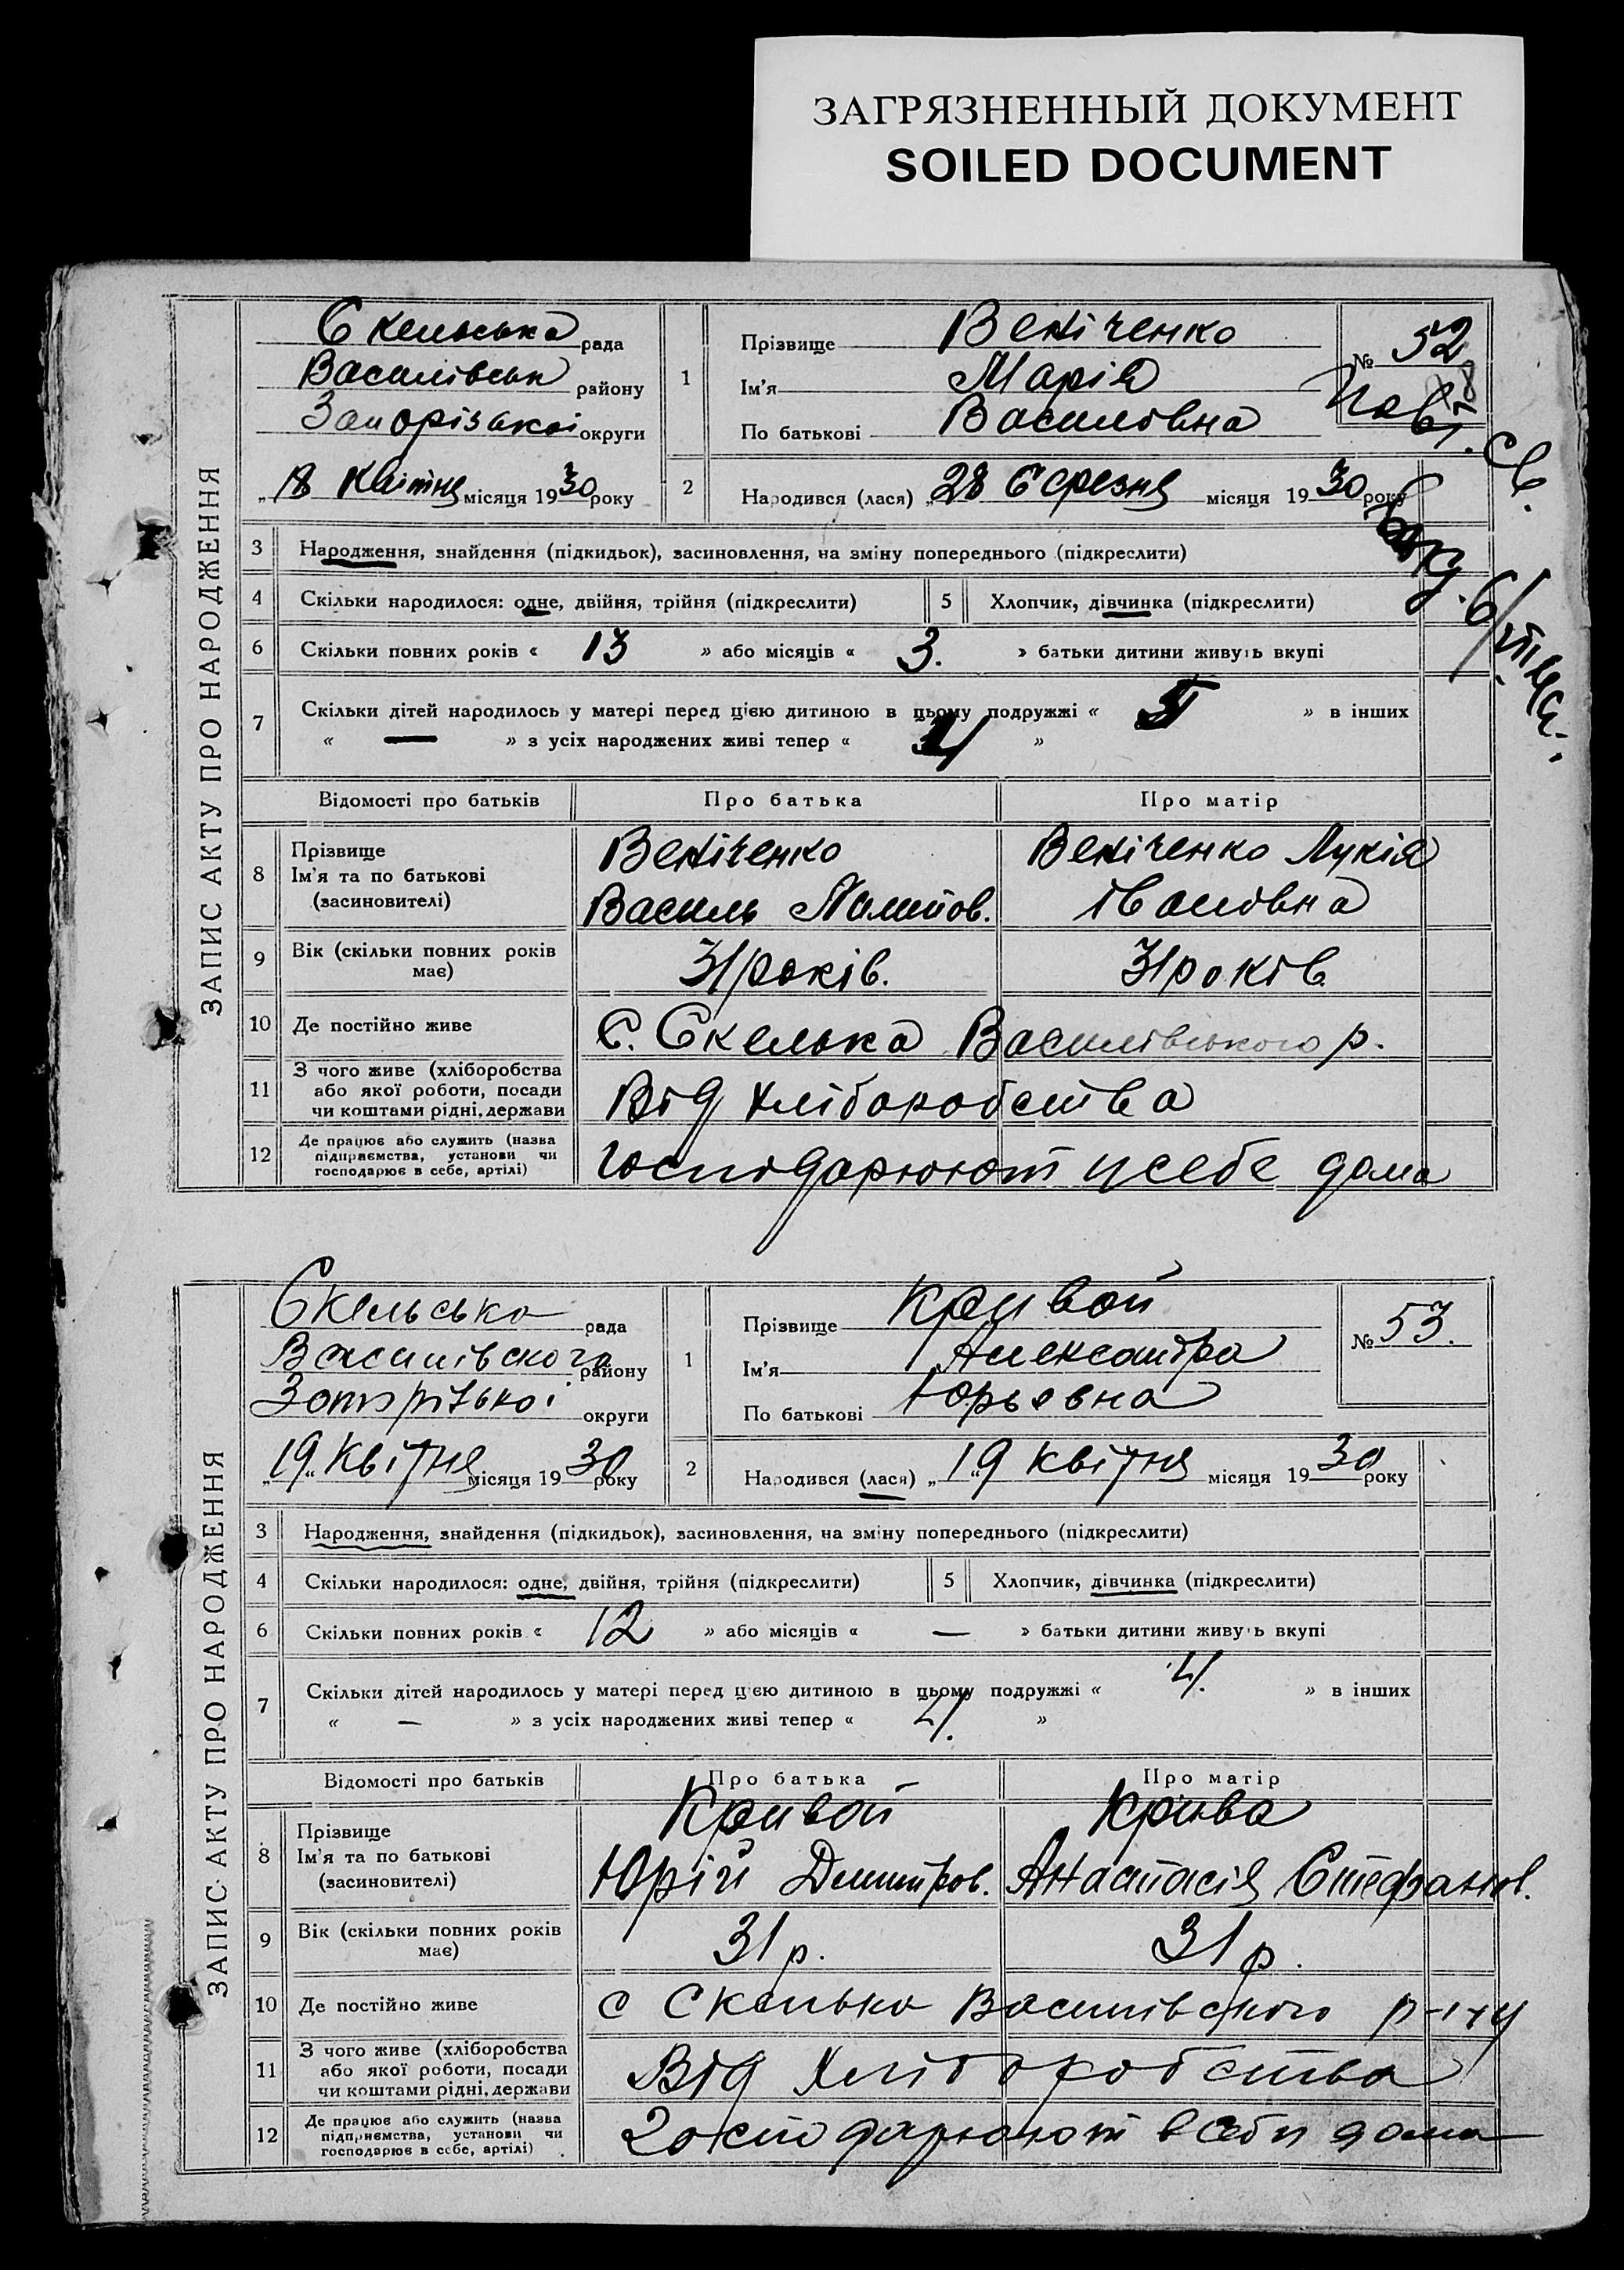 ЗАГРЯЗНЕННЫЙ ДОКУМЕНТ
SOILED DOCUMENT
ЗАПИС АКТУ ПРО НАРОДЖЕННЯ
Скельська рада
Василівськ району
Запорізької округи
„18 Квітня місяця 1930 року
1
Прізвище Векіченко
Ім'я Марія
По батькові Василовна
№ 52
2
Народився (лася) „28 Березня місяця 1930 року
3 Народження, знайдення (підкидьок), засиновлення, на зміну попереднього (підкреслити)
4 Скільки народилося: одне, двійня, трійня (підкреслити) 5 Хлопчик, дівчинка (підкреслити)
6 Скільки повних років « 13 » або місяців « 3. » батьки дитини живуть вкупі
7 Скільки дітей народилось у матері перед цією дитиною в цьому подружжі « » в інших
« — » з усіх народжених живі тепер « 4 »
Відомості про батьків Про батька Про матір
8 Прізвище Ім'я та по батькові (засиновителі)
Векіченко
Василь
Векіченко Лукія
Івановна
9 Вік (скільки повних років має) 31 років. 31 років
10 Де постійно живе С. Скелька Василівського р.
11 З чого живе (хліборобства або якої роботи, посади чи коштами рідні, держави Від хліборобства
12 Де працює або служить (назва підприємства, установи чи господарює в себе, артілі) господарюют у себе дома
ЗАПИС АКТУ ПРО НАРОДЖЕННЯ
Скельська рада
Василівского району
округи
„19" Квітня місяця 1930 року
1
Прізвище Кривой
Ім'я Александра
По батькові Юрьевна
№ 53.
2
Народився (лася) „19" квітня місяця 1930 року
3 Народження, знайдення (підкидьок), засиновлення, на зміну попереднього (підкреслити)
4 Скільки народилося: одне, двійня, трійня (підкреслити) 5 Хлопчик, дівчинка (підкреслити)
6 Скільки повних років « 12 » або місяців « — » батьки дитини живуть вкупі
7 Скільки дітей народилось у матері перед цією дитиною в цьому подружжі « 4. » в інших
« — » з усіх народжених живі тепер « 4. »
Відомості про батьків Про батька Про матір
8 Прізвище Ім'я та по батькові (засиновителі)
Кривой
Юрій Димитров.
Крива
Анастасія Стефанов.
9 Вік (скільки повних років має) 31 р. 31 р.
10 Де постійно живе с Скелька Василівского р-ну
11 З чого живе (хліборобства або якої роботи, посади чи коштами рідні, держави Від хліборобства
12 Де працює або служить (назва підприємства, установи чи господарює в себе, артілі) господарюют в себи дома